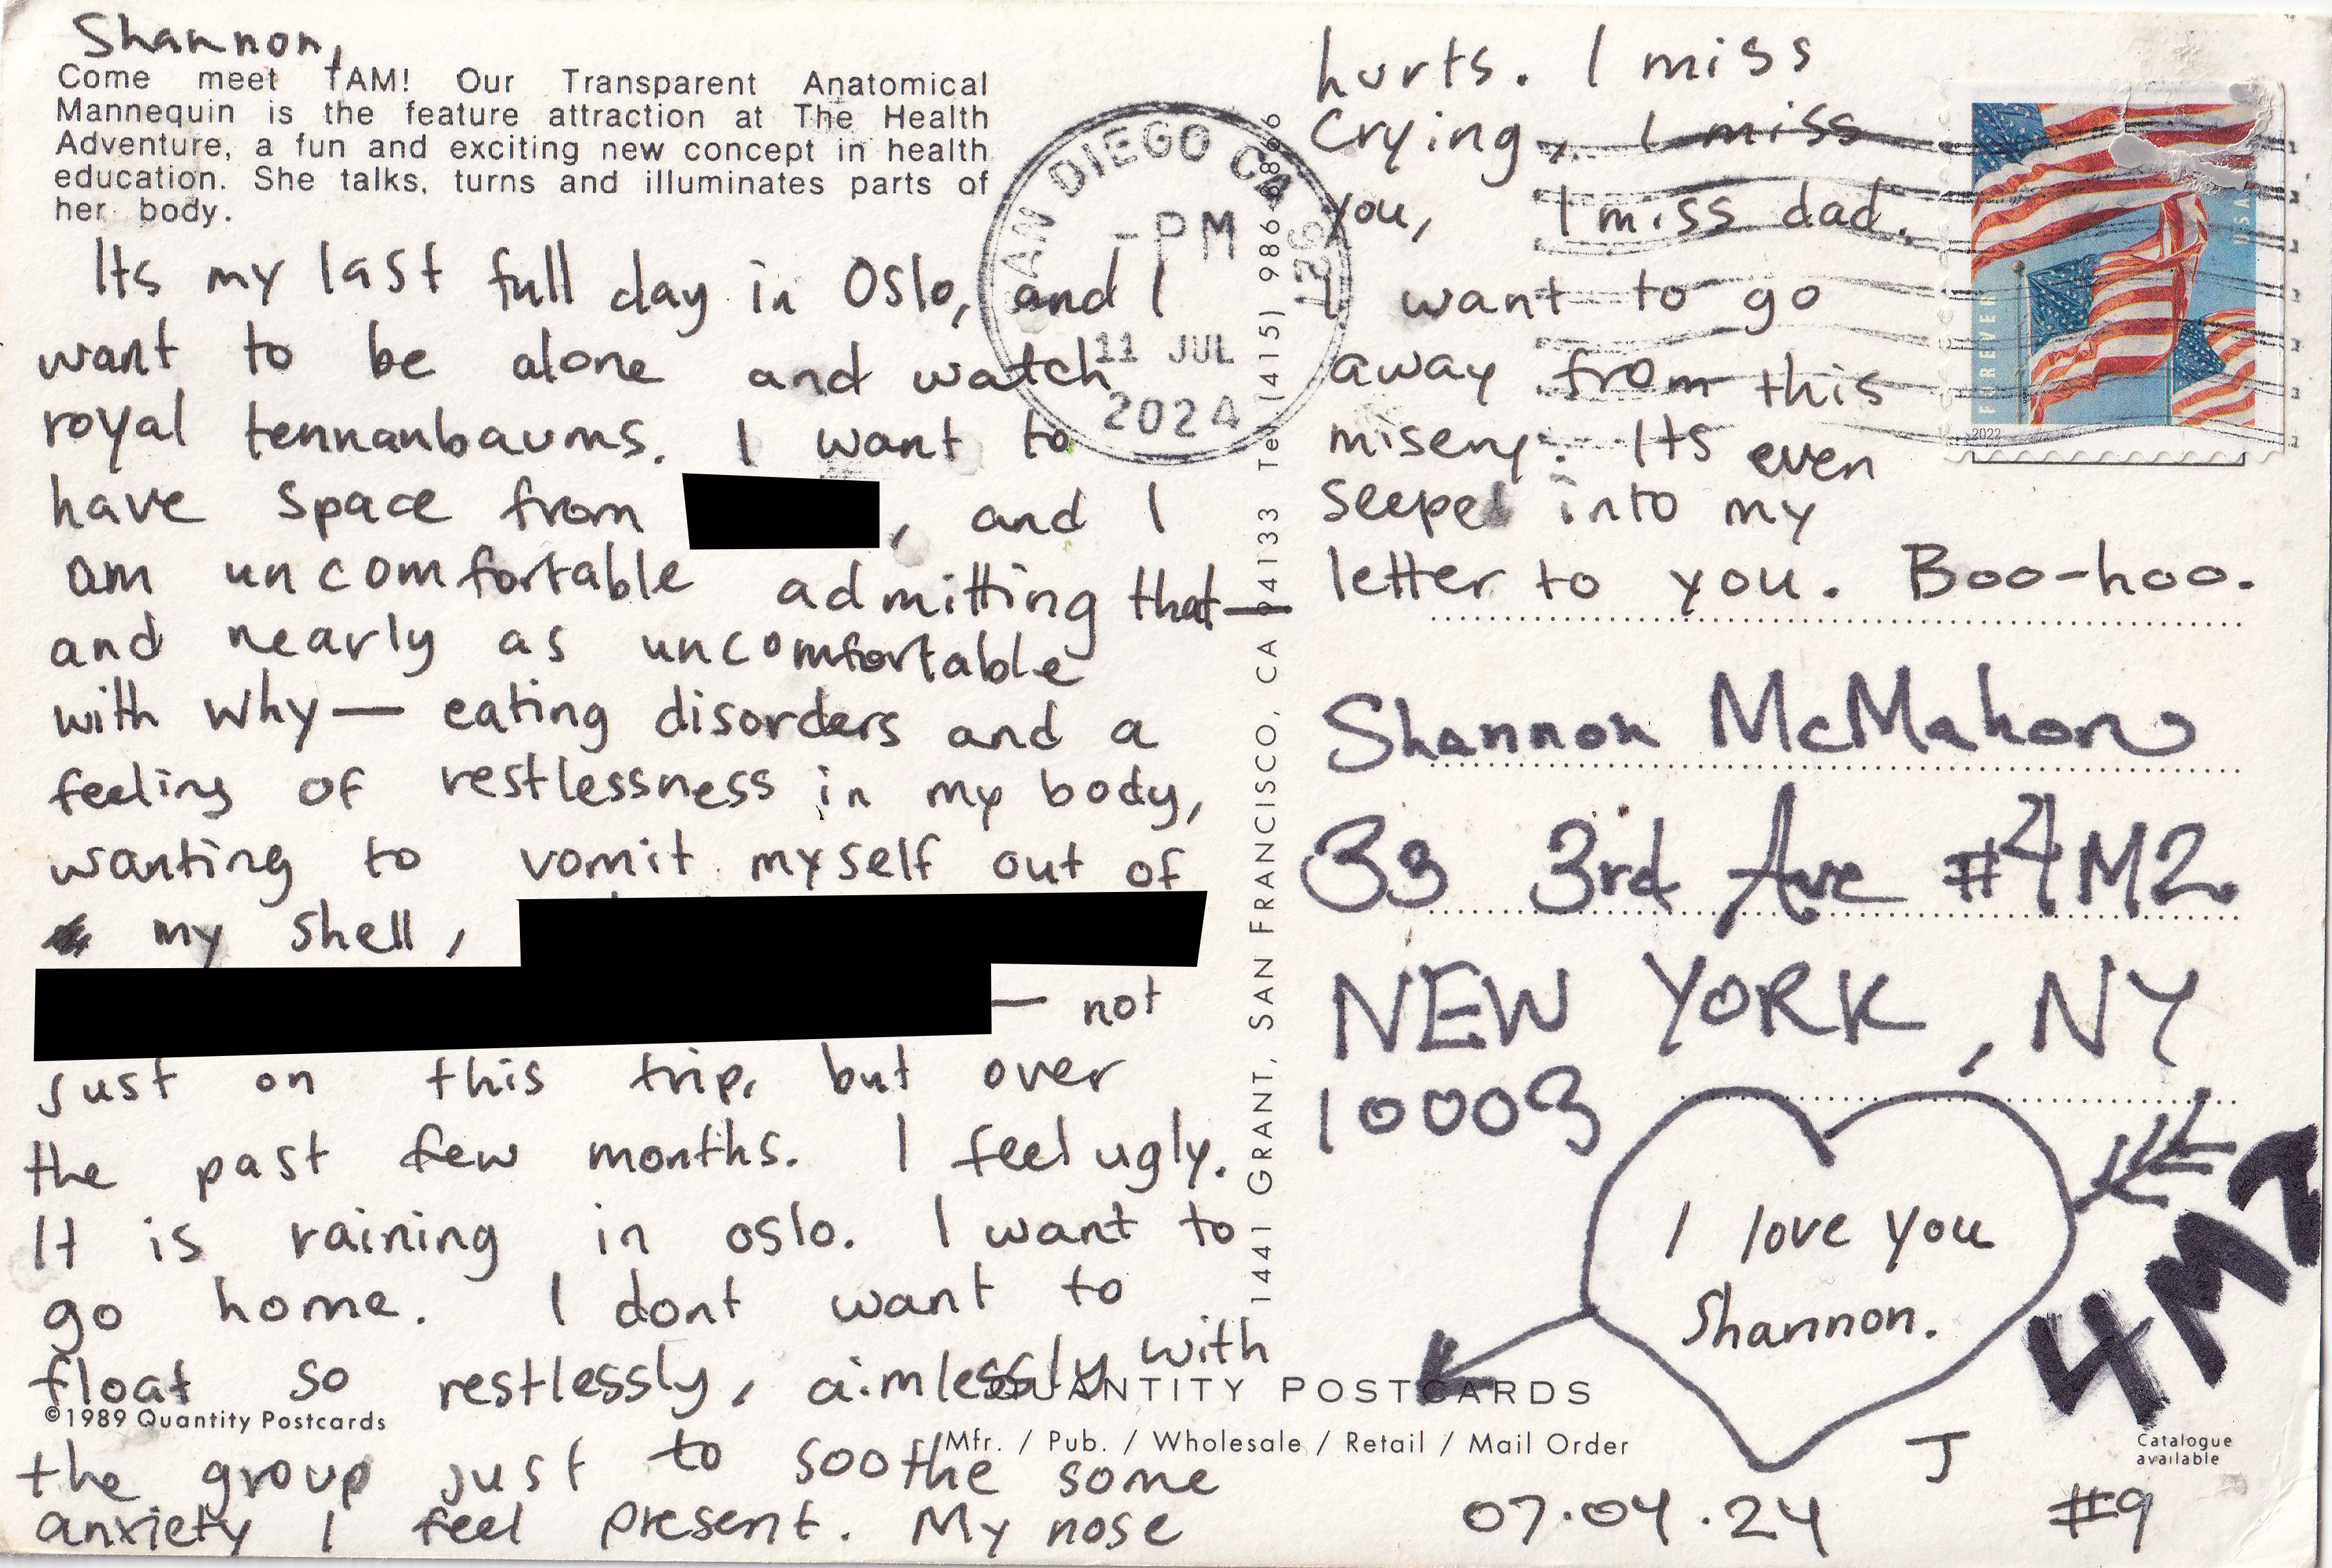 Shannon,
Come meet TAM! Our Transparent Anatomical
Mannequin is the feature attraction at The Health
Adventure, a fun and exciting new concept in health
education. She talks, turns and illuminates parts of
her body.
Its my last full day in Oslo, and I
want to be alone and watch
royal tennanbaums. I want to
have space from , and I
am uncomfortable admitting that—
and nearly as uncomfortable
with why— eating disorders and a
feeling of restlessness in my body,
wanting to vomit myself out of
my shell,
— not
just on this trip, but over
the past few months. I feel ugly.
It is raining in oslo. I want to
go home. I dont want to
float so restlessly, aimlessly with
the group just to soothe some
anxiety I feel present. My nose
hurts. I miss
crying, I miss
you, I miss dad.
I want to go
away from this
misery. Its even
seeped into my
letter to you. Boo-hoo.
SAN DIEGO CA
-PM
11 JUL
2024
FOREVER
USA
2022
Shannon McMahon
33 3rd Ave #4M2
NEW YORK, NY
10003
I love you
Shannon.
4M2
J
07.04.24 #9
1441 GRANT, SAN FRANCISCO, CA 94133 Tel (415) 986-8866
©1989 Quantity Postcards
QUANTITY POSTCARDS
Mfr. / Pub. / Wholesale / Retail / Mail Order
Catalogue
available